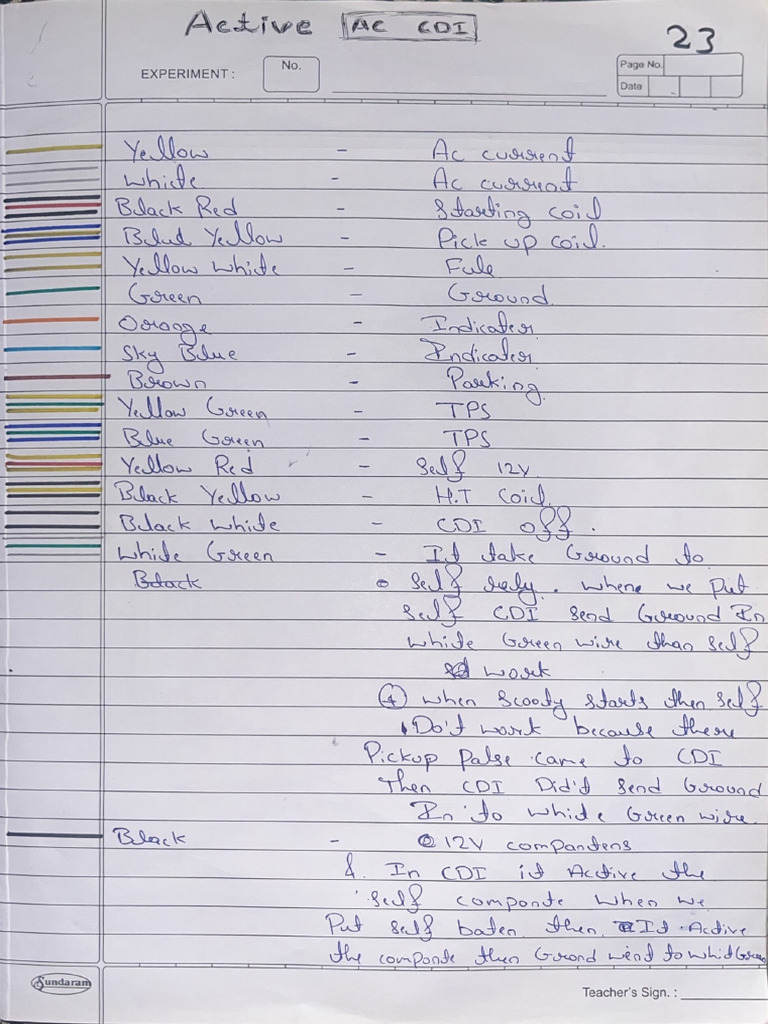 Active AC CDI
23
EXPERIMENT :
No.
Page No.
Date
Yellow - Ac current
White - Ac current
Black Red - Starting coil
Blue Yellow - Pick up coil.
Yellow White - Fule
Green - Ground
Orange - Indicator
Sky Blue - Indicator
Brown - Parking
Yellow Green - TPS
Blue Green - TPS
Yellow Red - Self 12V
Black Yellow - H.T Coil
Black White - CDI off.
White Green - It take Ground to
Black self rely. where we put
self CDI send Ground In
white Green wire than self
work
④ when Scooty starts then self
Do't work because there
Pickup Palse came to CDI
Then CDI Did't send Ground
In to white Green wire.
Black - 12V compantens
&. In CDI it Active the
self componte when we
Put self baten then It Active
the componte then Grond went to whit Green
Sundaram
Teacher's Sign. :